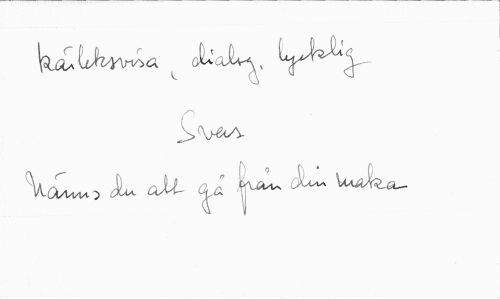 kärleksvisa, dialog, lycklig
Svens
Nänns du att gå från din maka